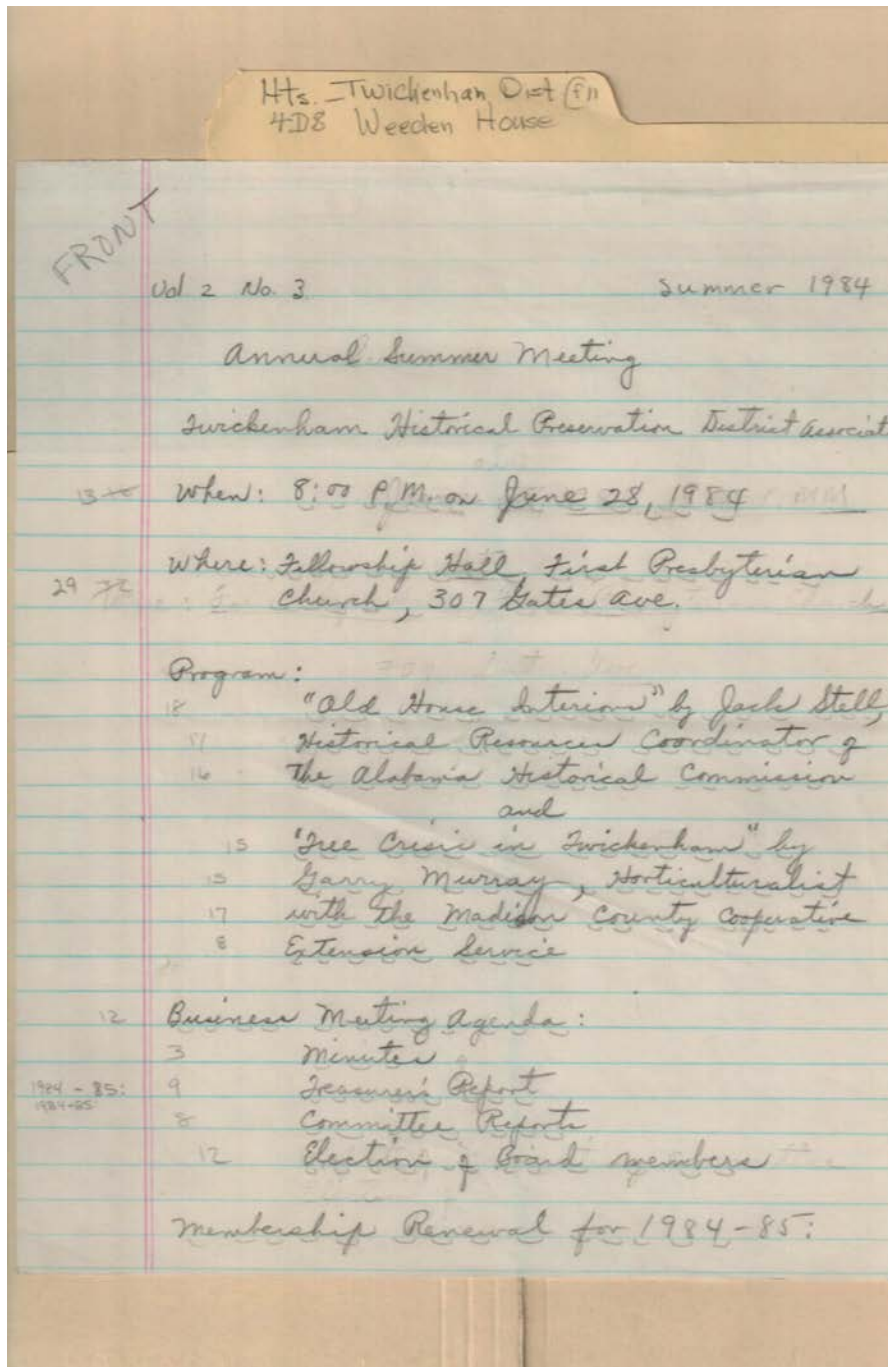 Hts. - Twickenham Dist
4D8 Weeden House
FRONT
Vol 2 No. 3 Summer 1984
Annual Summer Meeting
Twickenham Historical Preservation District Associat
13 When: 8:00 P.M. on June 28, 1984
29 Where: Fellowship Hall, First Presbyterian
Church, 307 Gates Ave.
Program:
18 "Old House Interiors" by Jack Stell,
17 Historical Resources Coordinator of
16 the Alabama Historical Commission
and
15 "Tree Crisis in Twickenham" by
15 Garry Murray, Horticulturalist
17 with the Madison County Cooperative
8 Extension Service
12 Business Meeting Agenda:
3 Minutes
1984-85: 9 Treasurer's Report
1984-85:
8 Committee Reports
12 Election of Board members
Membership Renewal for 1984-85: